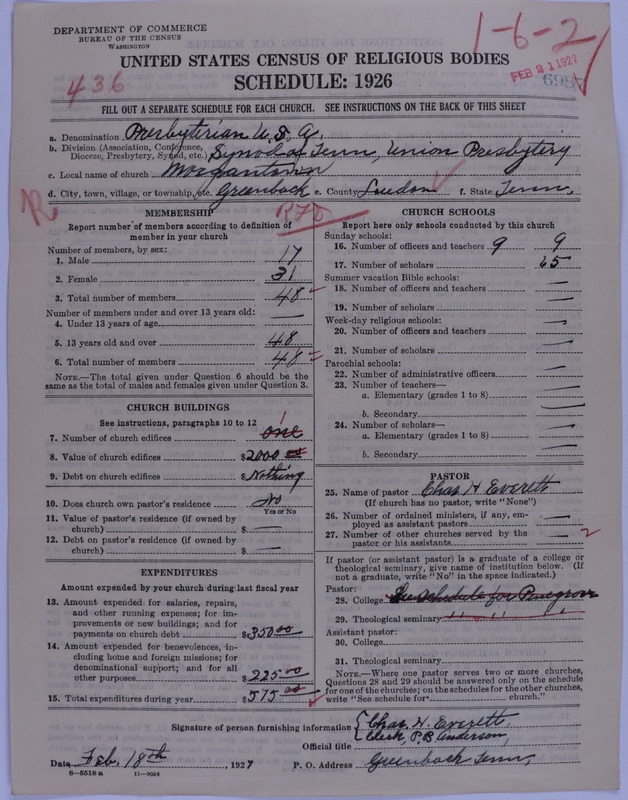 DEPARTMENT OF COMMERCE
BUREAU OF THE CENSUS
WASHINGTON
1-6-27
FEB 21 1927
UNITED STATES CENSUS OF RELIGIOUS BODIES
SCHEDULE: 1926
436
FILL OUT A SEPARATE SCHEDULE FOR EACH CHURCH. SEE INSTRUCTIONS ON THE BACK OF THIS SHEET
a. Denomination Presbyterian U. S. A.
b. Division (Association, Conference, Diocese, Presbytery, Synod, etc.) Synod of Tenn, Union Presbytery
c. Local name of church Morgantown
d. City, town, village, or township, etc. Greenback e. County Loudon f. State Tenn,
R
MEMBERSHIP
Report number of members according to definition of
member in your church
Number of members, by sex:
1. Male 17
2. Female 31
3. Total number of members 48
Number of members under and over 13 years old:
4. Under 13 years of age —
5. 13 years old and over 48
6. Total number of members 48
NOTE.—The total given under Question 6 should be the
same as the total of males and females given under Question 3.
CHURCH BUILDINGS
See instructions, paragraphs 10 to 12
7. Number of church edifices one 1
8. Value of church edifices $2000
9. Debt on church edifices $ Nothing
10. Does church own pastor's residence No
Yes or No
11. Value of pastor's residence (if owned by
church) $ —
12. Debt on pastor's residence (if owned by
church) $ —
EXPENDITURES
Amount expended by your church during last fiscal year
13. Amount expended for salaries, repairs,
and other running expenses; for im-
provements or new buildings; and for
payments on church debt $350 00
14. Amount expended for benevolences, in-
cluding home and foreign missions; for
denominational support; and for all
other purposes $225 00
15. Total expenditures during year $575 00
CHURCH SCHOOLS
Report here only schools conducted by this church
Sunday schools:
16. Number of officers and teachers 9 9
17. Number of scholars 65
Summer vacation Bible schools:
18. Number of officers and teachers —
19. Number of scholars —
Week-day religious schools:
20. Number of officers and teachers —
21. Number of scholars —
Parochial schools:
22. Number of administrative officers —
23. Number of teachers—
a. Elementary (grades 1 to 8) —
b. Secondary —
24. Number of scholars—
a. Elementary (grades 1 to 8) —
b. Secondary —
PASTOR
25. Name of pastor Chas. H Everett
(If church has no pastor, write "None")
26. Number of ordained ministers, if any, em-
ployed as assistant pastors —
27. Number of other churches served by the
pastor or his assistants — 2
If pastor (or assistant pastor) is a graduate of a college or
theological seminary, give name of institution below. (If
not a graduate, write "No" in the space indicated.)
Pastor:
28. College See schedule for Pinegrove
29. Theological seminary " " "
Assistant pastor:
30. College
31. Theological seminary
NOTE.—Where one pastor serves two or more churches,
Questions 28 and 29 should be answered only on the schedule
for one of the churches; on the schedules for the other churches,
write "See schedule for church."
Signature of person furnishing information Chas. H. Everett
Clerk, P.B. Anderson,
Official title
Date Feb. 18th, 1927 P. O. Address Greenback Tenn,
8—5518 a 11—9034